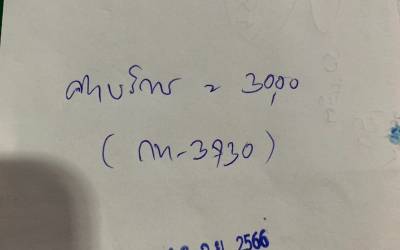 ค่าบริการ = 3000
( กท-3730 )
2566